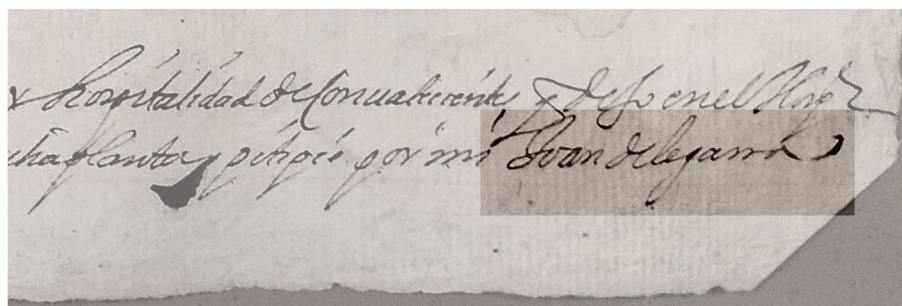 hospitalidad de Conualecientes y de so en el Hosp
cha planta y pitipie por mi Juan de legarra